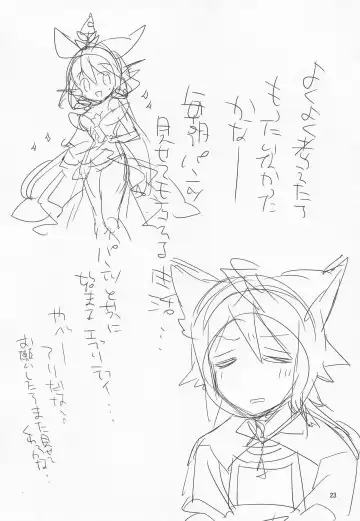 よくよく考えたら
もったいなかった
かなーー
毎朝パンツ
見せてもらえる
生活…
パンツとかに
始まるエブリデイ…
やべーー
アリだな…
お願いしたらまた見せて
くれるかな…
23